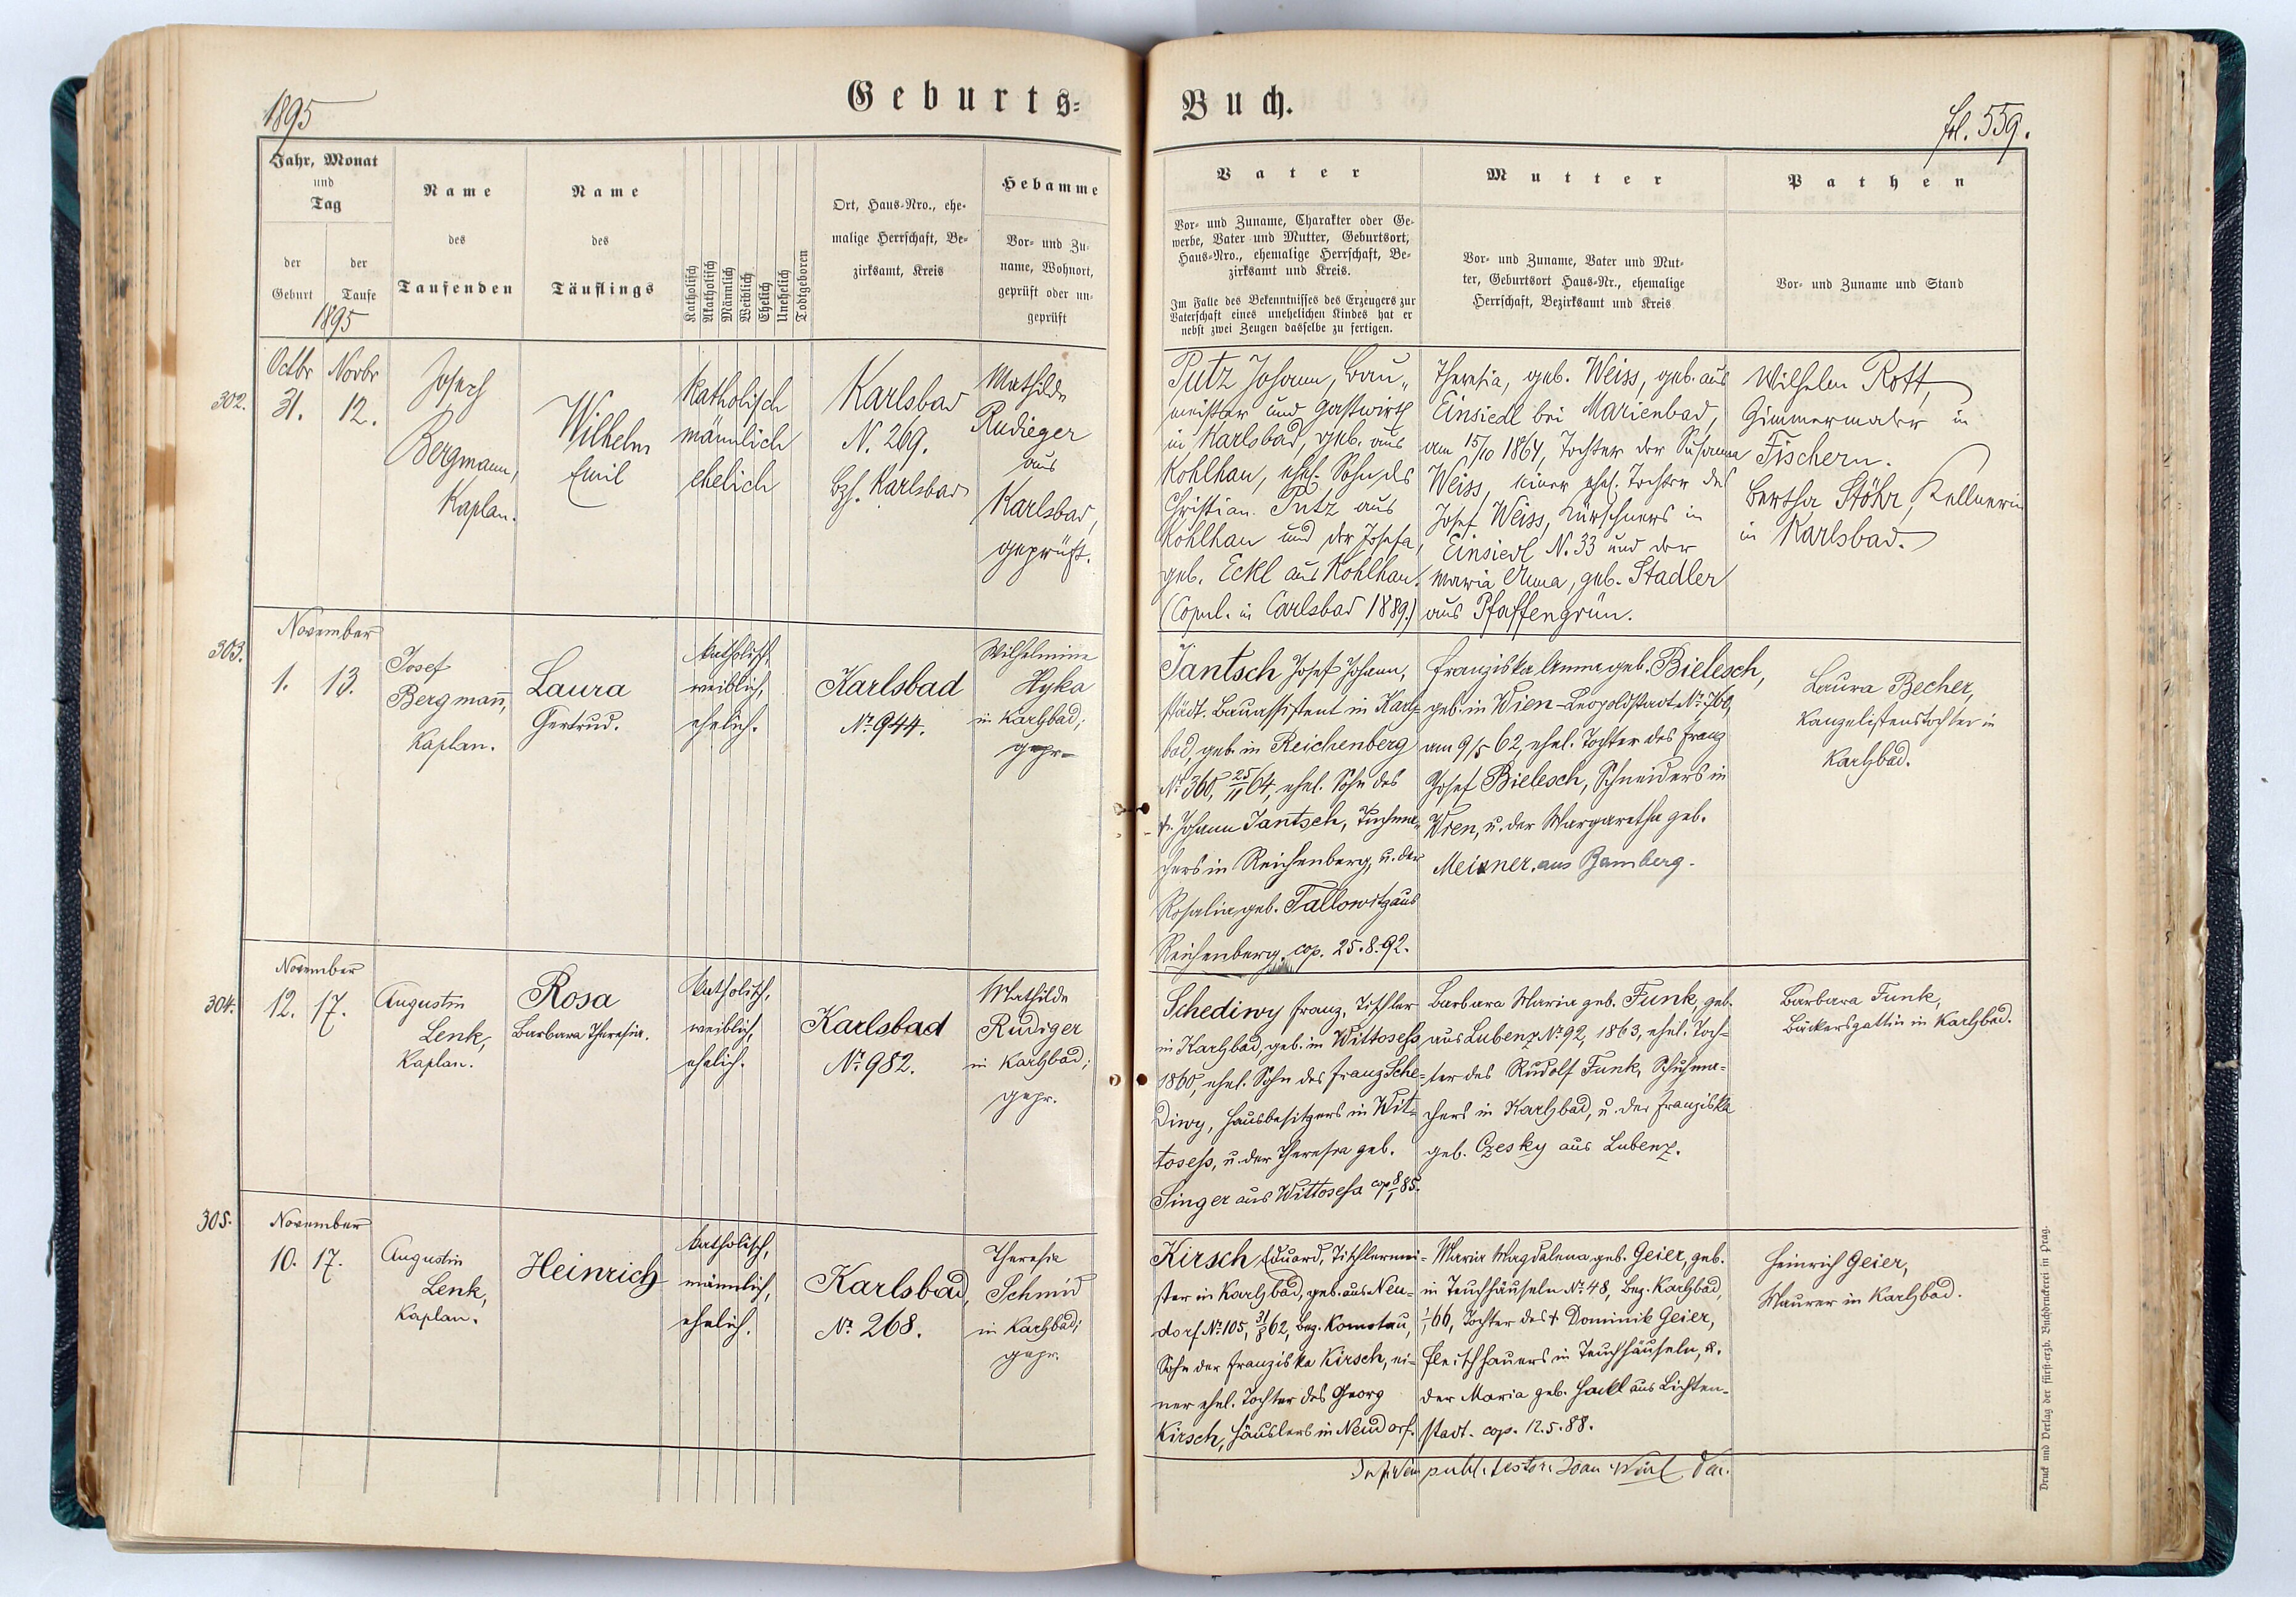 1895
Geburts-
Buch.
fol. 559.
Jahr, Monat
und
Tag
der
Geburt
der
Taufe
1895
Name
des
Taufenden
Name
des
Täuflings
Katholisch
Akatholisch
Männlich
Weiblich
Ehelich
Unehelich
Todtgeboren
Ort, Haus-Nro., ehe-
malige Herrschaft, Be-
zirksamt, Kreis
Hebamme
Vor- und Zu-
name, Wohnort,
geprüft oder un-
geprüft
Vater
Vor- und Zuname, Charakter oder Ge-
werbe, Vater und Mutter, Geburtsort,
Haus-Nro., ehemalige Herrschaft, Be-
zirksamt und Kreis.
Im Falle des Bekenntnisses des Erzeugers zur
Vaterschaft eines unehelichen Kindes hat er
nebst zwei Zeugen dasselbe zu fertigen.
Mutter
Vor- und Zuname, Vater und Mut-
ter, Geburtsort Haus-Nr., ehemalige
Herrschaft, Bezirksamt und Kreis
Pathen
Vor- und Zuname und Stand
302.
Octbr
31.
Novbr
12.
Josef
Bergmann,
Kaplan.
Wilhelm
Emil
katholisch
männlich
ehelich
Karlsbad
N. 269.
Bzh. Karlsbad
Mathilde
Rudieger
aus
Karlsbad,
geprüft.
Putz Johann, Bau-
meister und Gastwirth
in Karlsbad, geb. aus
Kohlhau, ehel. Sohn des
Christian Putz aus
Kohlhau und der Josefa,
geb. Eckl aus Kohlhau.
(Copul. in Carlsbad 1889.)
Theresia, geb. Weiss, geb. aus
Einsiedl bei Marienbad,
am 15/10 1864, Tochter der Susanna
Weiss, einer ehel. Tochter des
Josef Weiss, Kürschners in
Einsiedl N. 33 und der
Maria Anna, geb. Stadler
aus Pfaffengrün.
Wilhelm Rott,
Zimmermaler in
Fischern.
Bertha Stöhr, Kellnerin
in Karlsbad.
303.
November
1. 13.
Josef
Bergmann,
Kaplan.
Laura
Gertrud.
katholisch,
weiblich,
ehelich.
Karlsbad
No. 944.
Wilhelmine
Hyka
in Karlsbad;
gepr.
Jantsch Josef Johann,
städt. Bauassistent in Karls-
bad, geb. in Reichenberg
No. 360, 25/11 64, ehel. Sohn des
† Johann Jantsch, Tuchma-
chers in Reichenberg, u. der
Rosalia geb. Fallowitz aus
Reichenberg. cop. 25.8.92.
Franziska Anna geb. Bielesch,
geb. in Wien-Leopoldstadt No. 760,
am 9/5 62, ehel. Tochter des Franz
Josef Bielesch, Schneiders in
Wien, u. der Margaretha geb.
Meixner, aus Bamberg.
Laura Becher,
Kanzelistenstochter in
Karlsbad.
304.
November
12. 17.
Augustin
Lenk,
Kaplan.
Rosa
Barbara Theresia.
katholisch,
weiblich,
ehelich.
Karlsbad
No. 982.
Mathilde
Rudiger
in Karlsbad;
gepr.
Schediwy Franz, Tischler
in Karlsbad, geb. in Wittosess
1860, ehel. Sohn des Franz Sche-
diwy, Hausbesitzers in Wit-
tosess, u. der Theresia geb.
Singer aus Wittosess cop 8/1 85.
Barbara Maria geb. Funk, geb.
aus Lubenz No. 92, 1863, ehel. Toch-
ter des Rudolf Funk, Schuhma-
chers in Karlsbad, u. der Franziska
geb. Czesky aus Lubenz.
Barbara Funk,
Bäckersgattin in Karlsbad.
305.
November
10. 17.
Augustin
Lenk,
Kaplan.
Heinrich
katholisch,
männlich,
ehelich.
Karlsbad,
No. 268.
Theresia
Schmid
in Karlsbad;
gepr.
Kirsch Eduard, Tischlermei-
ster in Karlsbad, geb. aus Neu-
dorf No. 105, 31/8 62, Bez. Komotau,
Sohn der Franziska Kirsch, ei-
ner ehel. Tochter des Georg
Kirsch, Häuslers in Neudorf.
Maria Magdalena geb. Geier, geb.
in Teuchhäuseln No. 48, Bez. Karlsbad,
66, Tochter des † Dominik Geier,
Fleischhauers in Teuchhäuseln, u.
der Maria geb. Hackl aus Lichten-
stadt. cop. 12.5.88.
Heinrich Geier,
Maurer in Karlsbad.
In fidem publ. testor: Joan
Druck und Verlag der fürst-erzb. Buchdruckerei in Prag.